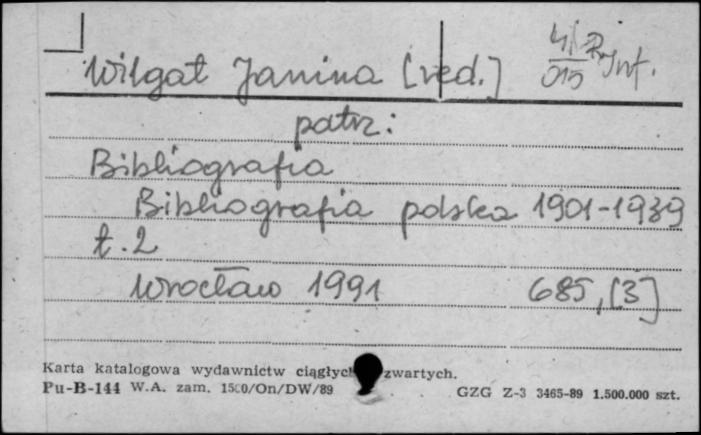 Wilgat Janina [red.] 015 Inf.
patrz:
Bibliografia
Bibliografia polska 1901-1939
t. 2
Wrocław 1991 685, [3]
Karta katalogowa wydawnictw zwartych.
Pu-B-144 W.A. zam. 1500/On/DW/89 GZG Z-3 3465-89 1.500.000 szt.